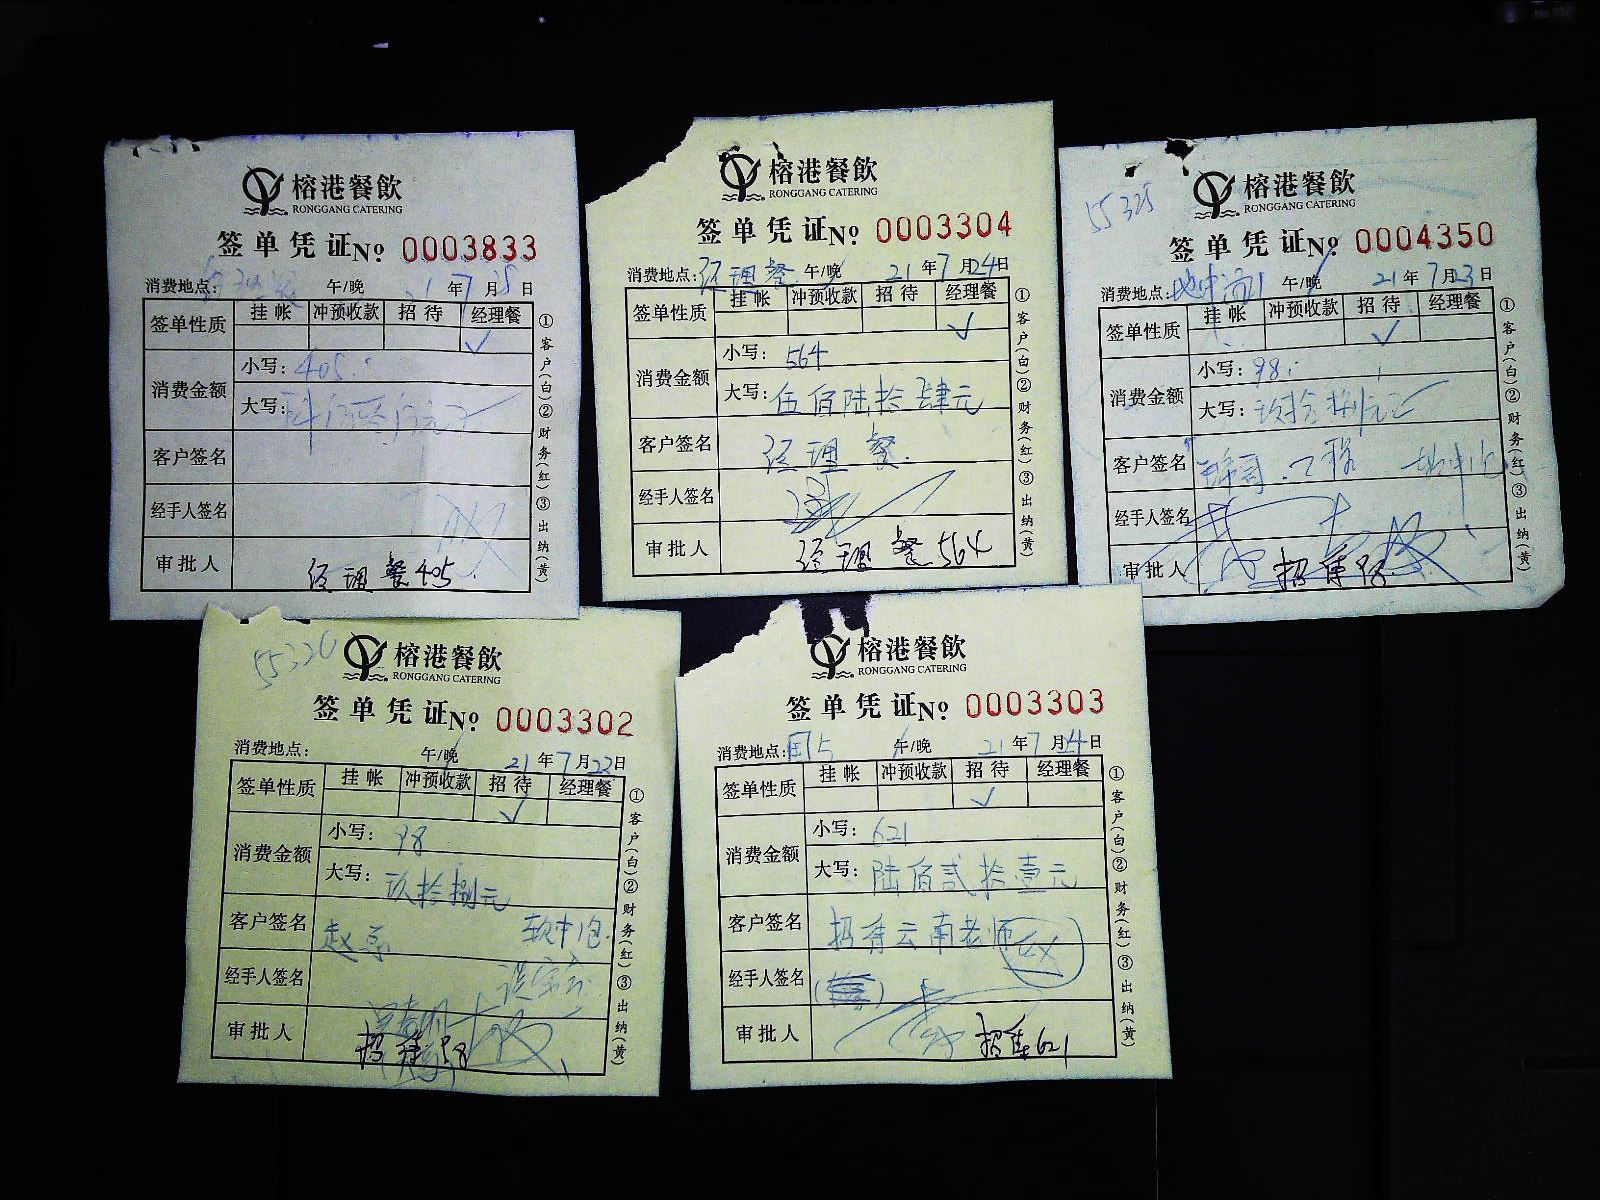 榕港餐飲
RONGGANG CATERING
签单凭证 № 0003833
消费地点: 午/晚 21年7月25日
签单性质 挂帐 冲预收款 招待 经理餐
✓
消费金额 小写: 405.
大写:
客户签名
经手人签名
审批人 经理餐405.
①客户(白)②财务(红)③出纳(黄)
榕港餐飲
RONGGANG CATERING
签单凭证 № 0003304
消费地点: 经理餐 午/晚 21年7月24日
签单性质 挂帐 冲预收款 招待 经理餐
✓
消费金额 小写: 564
大写: 伍佰陆拾肆元
客户签名 经理餐.
经手人签名
审批人 经理餐564
①客户(白)②财务(红)③出纳(黄)
55325
榕港餐飲
RONGGANG CATERING
签单凭证 № 0004350
消费地点: 午/晚 21年7月23日
签单性质 挂帐 冲预收款 招待 经理餐
✓
消费金额 小写: 98.
大写: 玖拾捌元
客户签名
经手人签名
审批人 招待98.
①客户(白)②财务(红)③出纳(黄)
榕港餐飲
RONGGANG CATERING
签单凭证 № 0003302
消费地点: 午/晚 21年7月23日
签单性质 挂帐 冲预收款 招待 经理餐
✓
消费金额 小写: 98
大写: 玖拾捌元
客户签名
经手人签名
审批人 招待98
①客户(白)②财务(红)③出纳(黄)
榕港餐飲
RONGGANG CATERING
签单凭证 № 0003303
消费地点: 午/晚 21年7月24日
签单性质 挂帐 冲预收款 招待 经理餐
✓
消费金额 小写: 621
大写: 陆佰贰拾壹元
客户签名 招待云南老师
经手人签名
审批人 招待621
①客户(白)②财务(红)③出纳(黄)